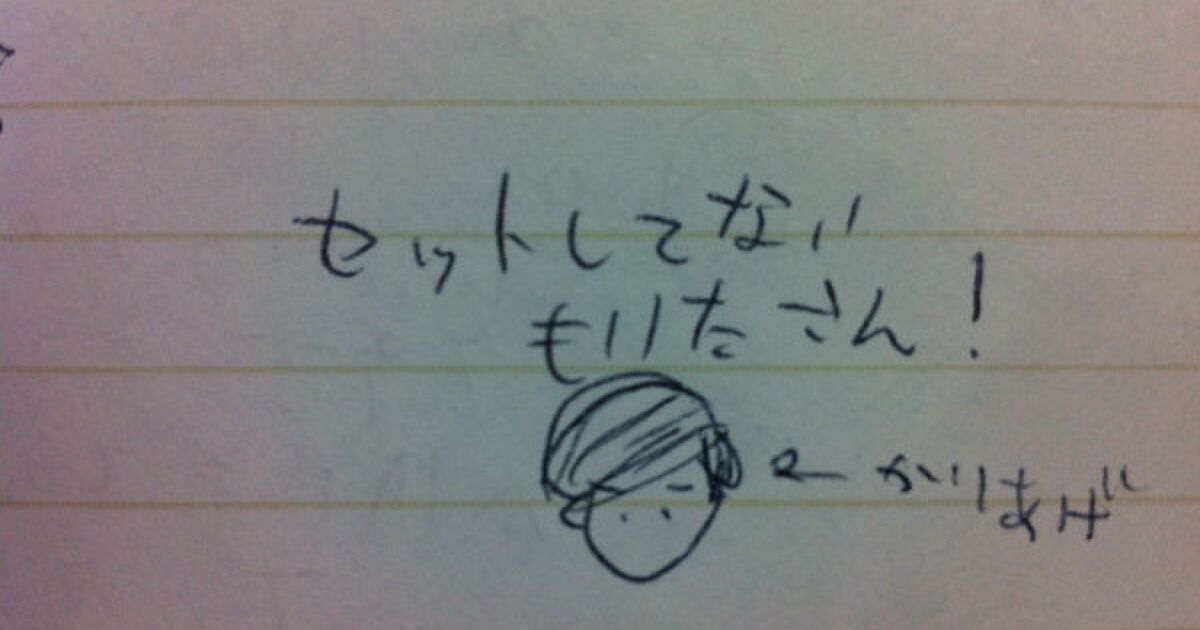 セットしてない
もりたさん!
←かりあげ